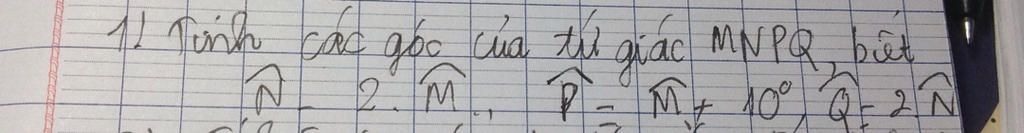 1) Tính các góc của tứ giác MNPQ, biết
N̂ = 2. M̂, P̂ = M̂ + 10°, Q̂ = 2 N̂